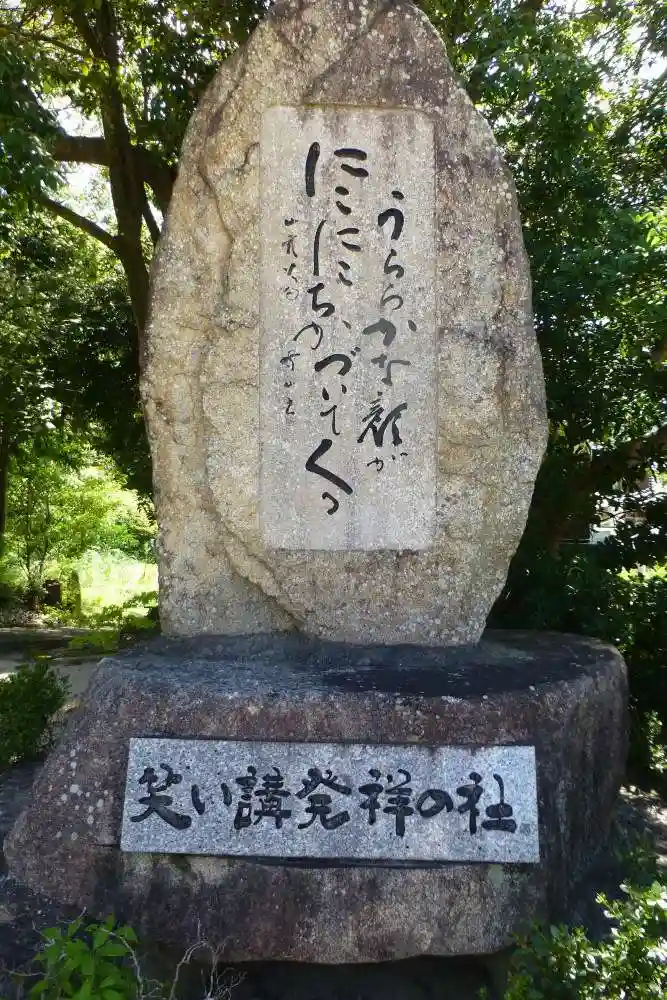 うららかな顔が
にこにこちかづいてくる
山頭火
笑い講発祥の社